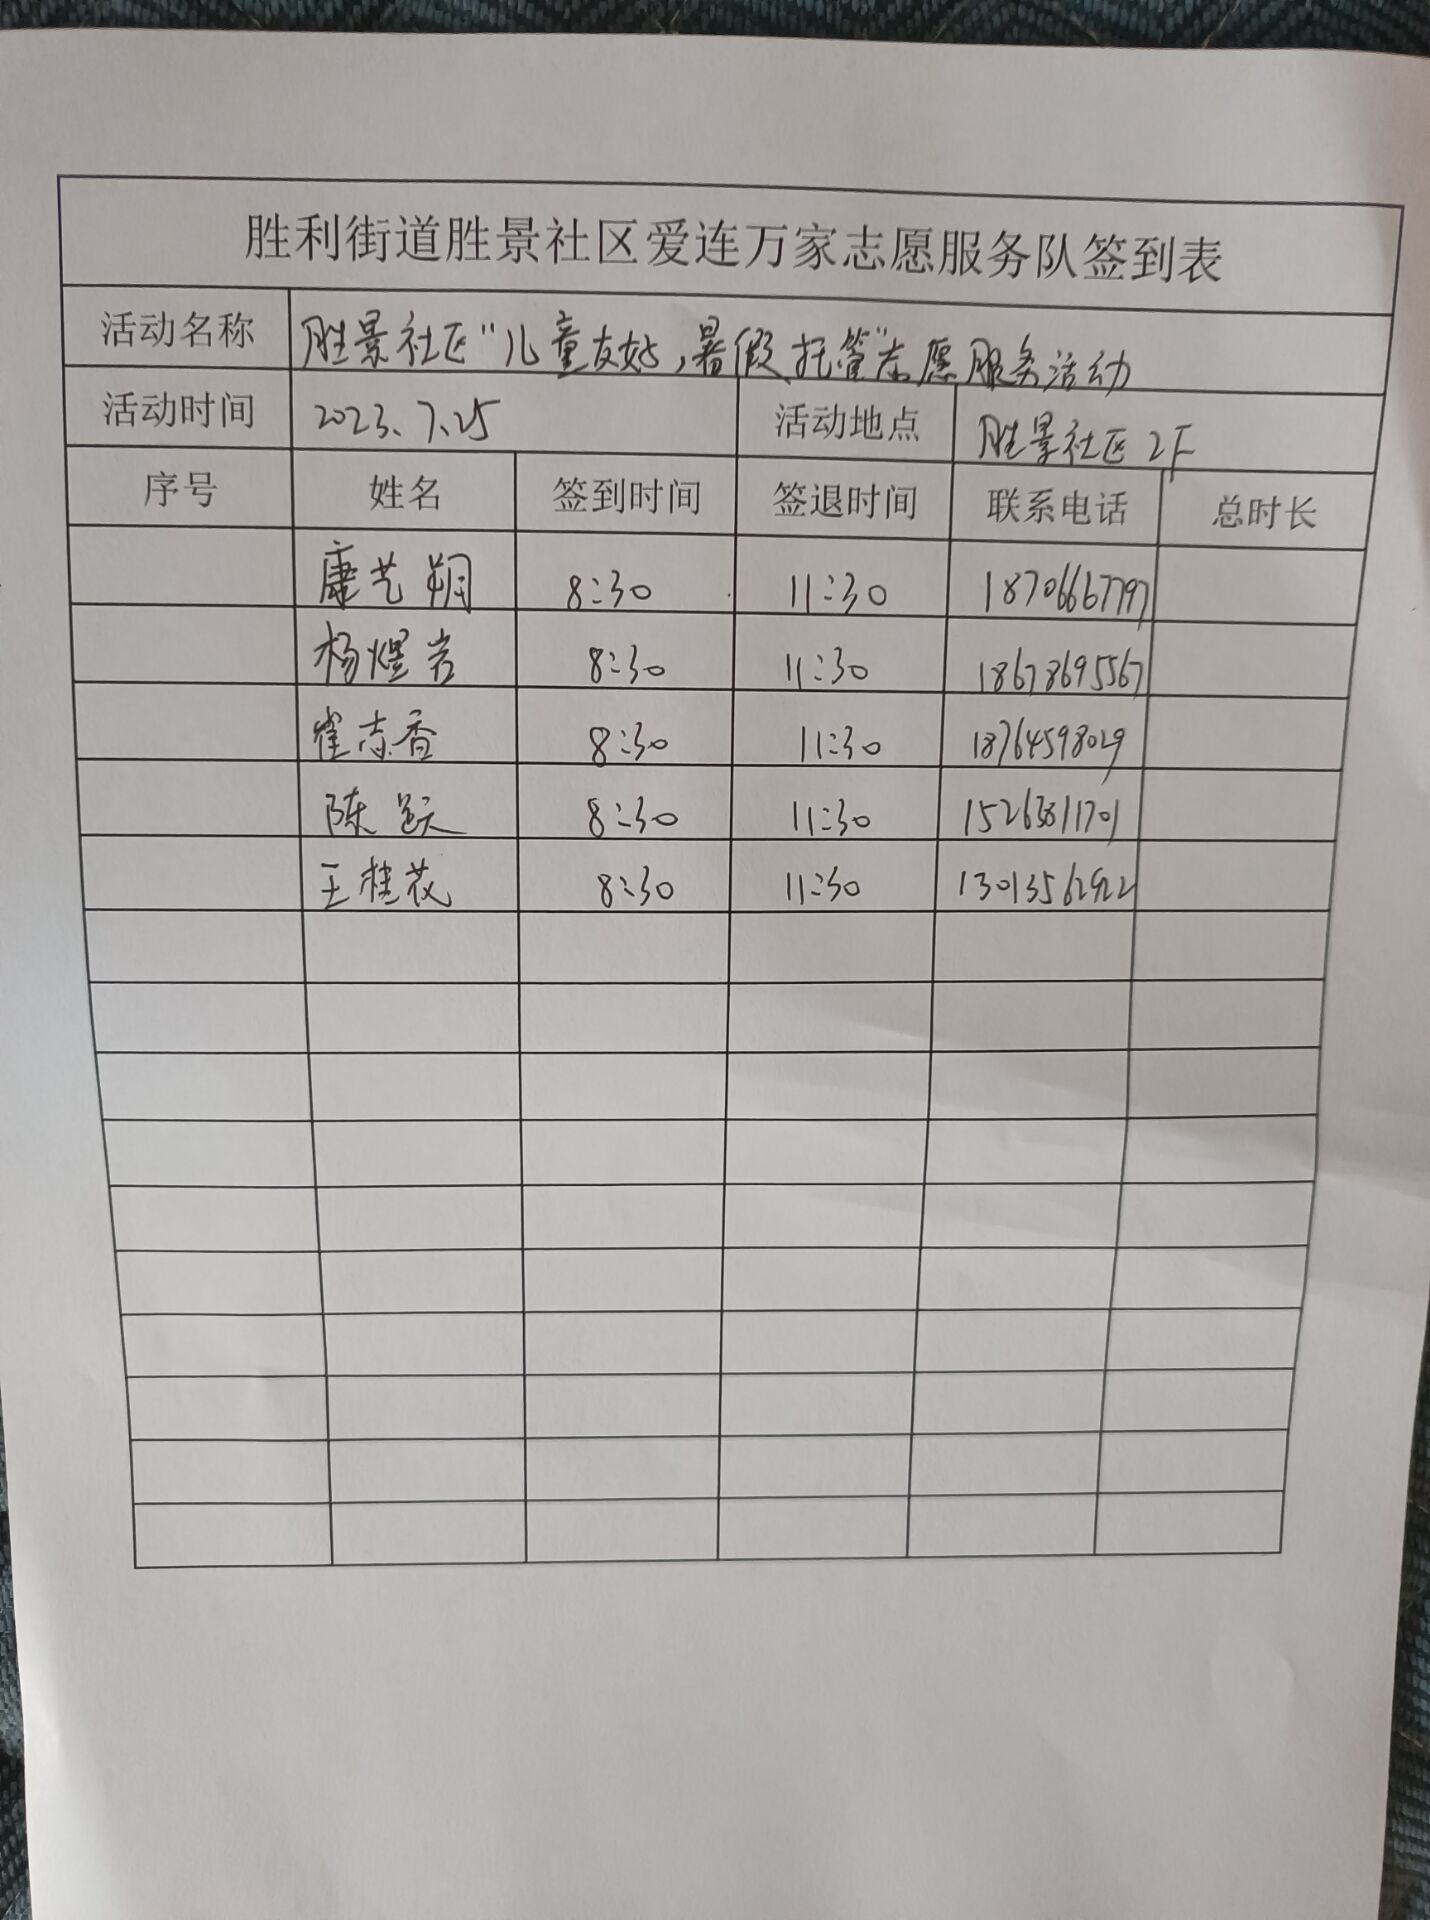 胜利街道胜景社区爱连万家志愿服务队签到表
活动名称 胜景社区"儿童友好，暑假托管"志愿服务活动
活动时间 2023.7.25 活动地点 胜景社区2F
序号 姓名 签到时间 签退时间 联系电话 总时长
康艺翔 8:30 11:30 18706667797
杨煜岩 8:30 11:30 18678695567
崔志香 8:30 11:30 18764598029
陈 8:30 11:30 15263811701
王桂花 8:30 11:30 13013562922